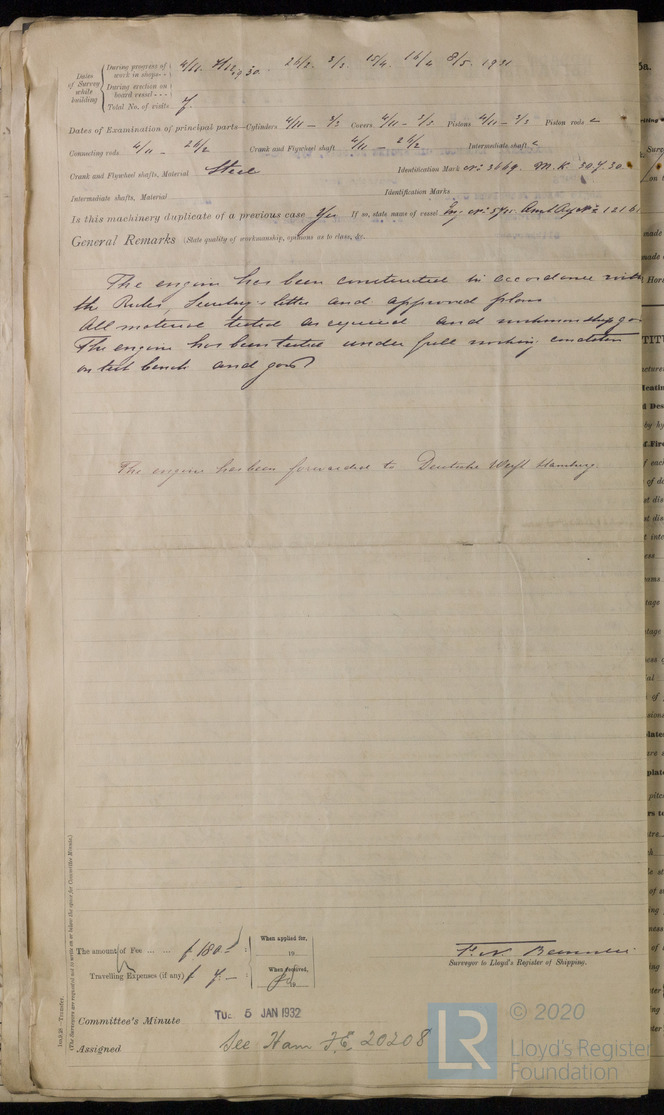 Dates of Survey while building
During progress of work in shops - - 4/11. 7/12 1930. 26/2. 3/3. 15/4. 16/4 8/5. 1931
During erection on board vessel - - -
Total No. of visits 7
Dates of Examination of principal parts—Cylinders 4/11 – 3/3 Covers 4/11 – 3/3 Pistons 4/11 – 3/3 Piston rods
Connecting rods 4/11 – 26/2 Crank and Flywheel shaft 4/11 – 26/2 Intermediate shaft
Crank and Flywheel shafts, Material Steel Identification Mark No 3669. M.K. 30.7.30
Intermediate shafts, Material Identification Marks
Is this machinery duplicate of a previous case Yes If so, state name of vessel
General Remarks (State quality of workmanship, opinions as to class, &c.
The engine has been constructed in accordance with
the Rules, Secretary's letter and approved plans
All material tested as required and workmanship go
The engine has been tested under full working condition
on test bench and good
The engine has been forwarded to Deutsche Werft Hamburg.
Im.9.28.—Transfer.
(The Surveyors are requested not to write on or below the space for Committee Minute.)
The amount of Fee - - £ 180 : When applied for, 19
Travelling Expenses (if any) £ 7. – : When received, 19
Surveyor to Lloyd's Register of Shipping.
Committee's Minute TUE. 5 JAN 1932
Assigned See Ham F.E. 20208
LR © 2020
Lloyd's Register
Foundation